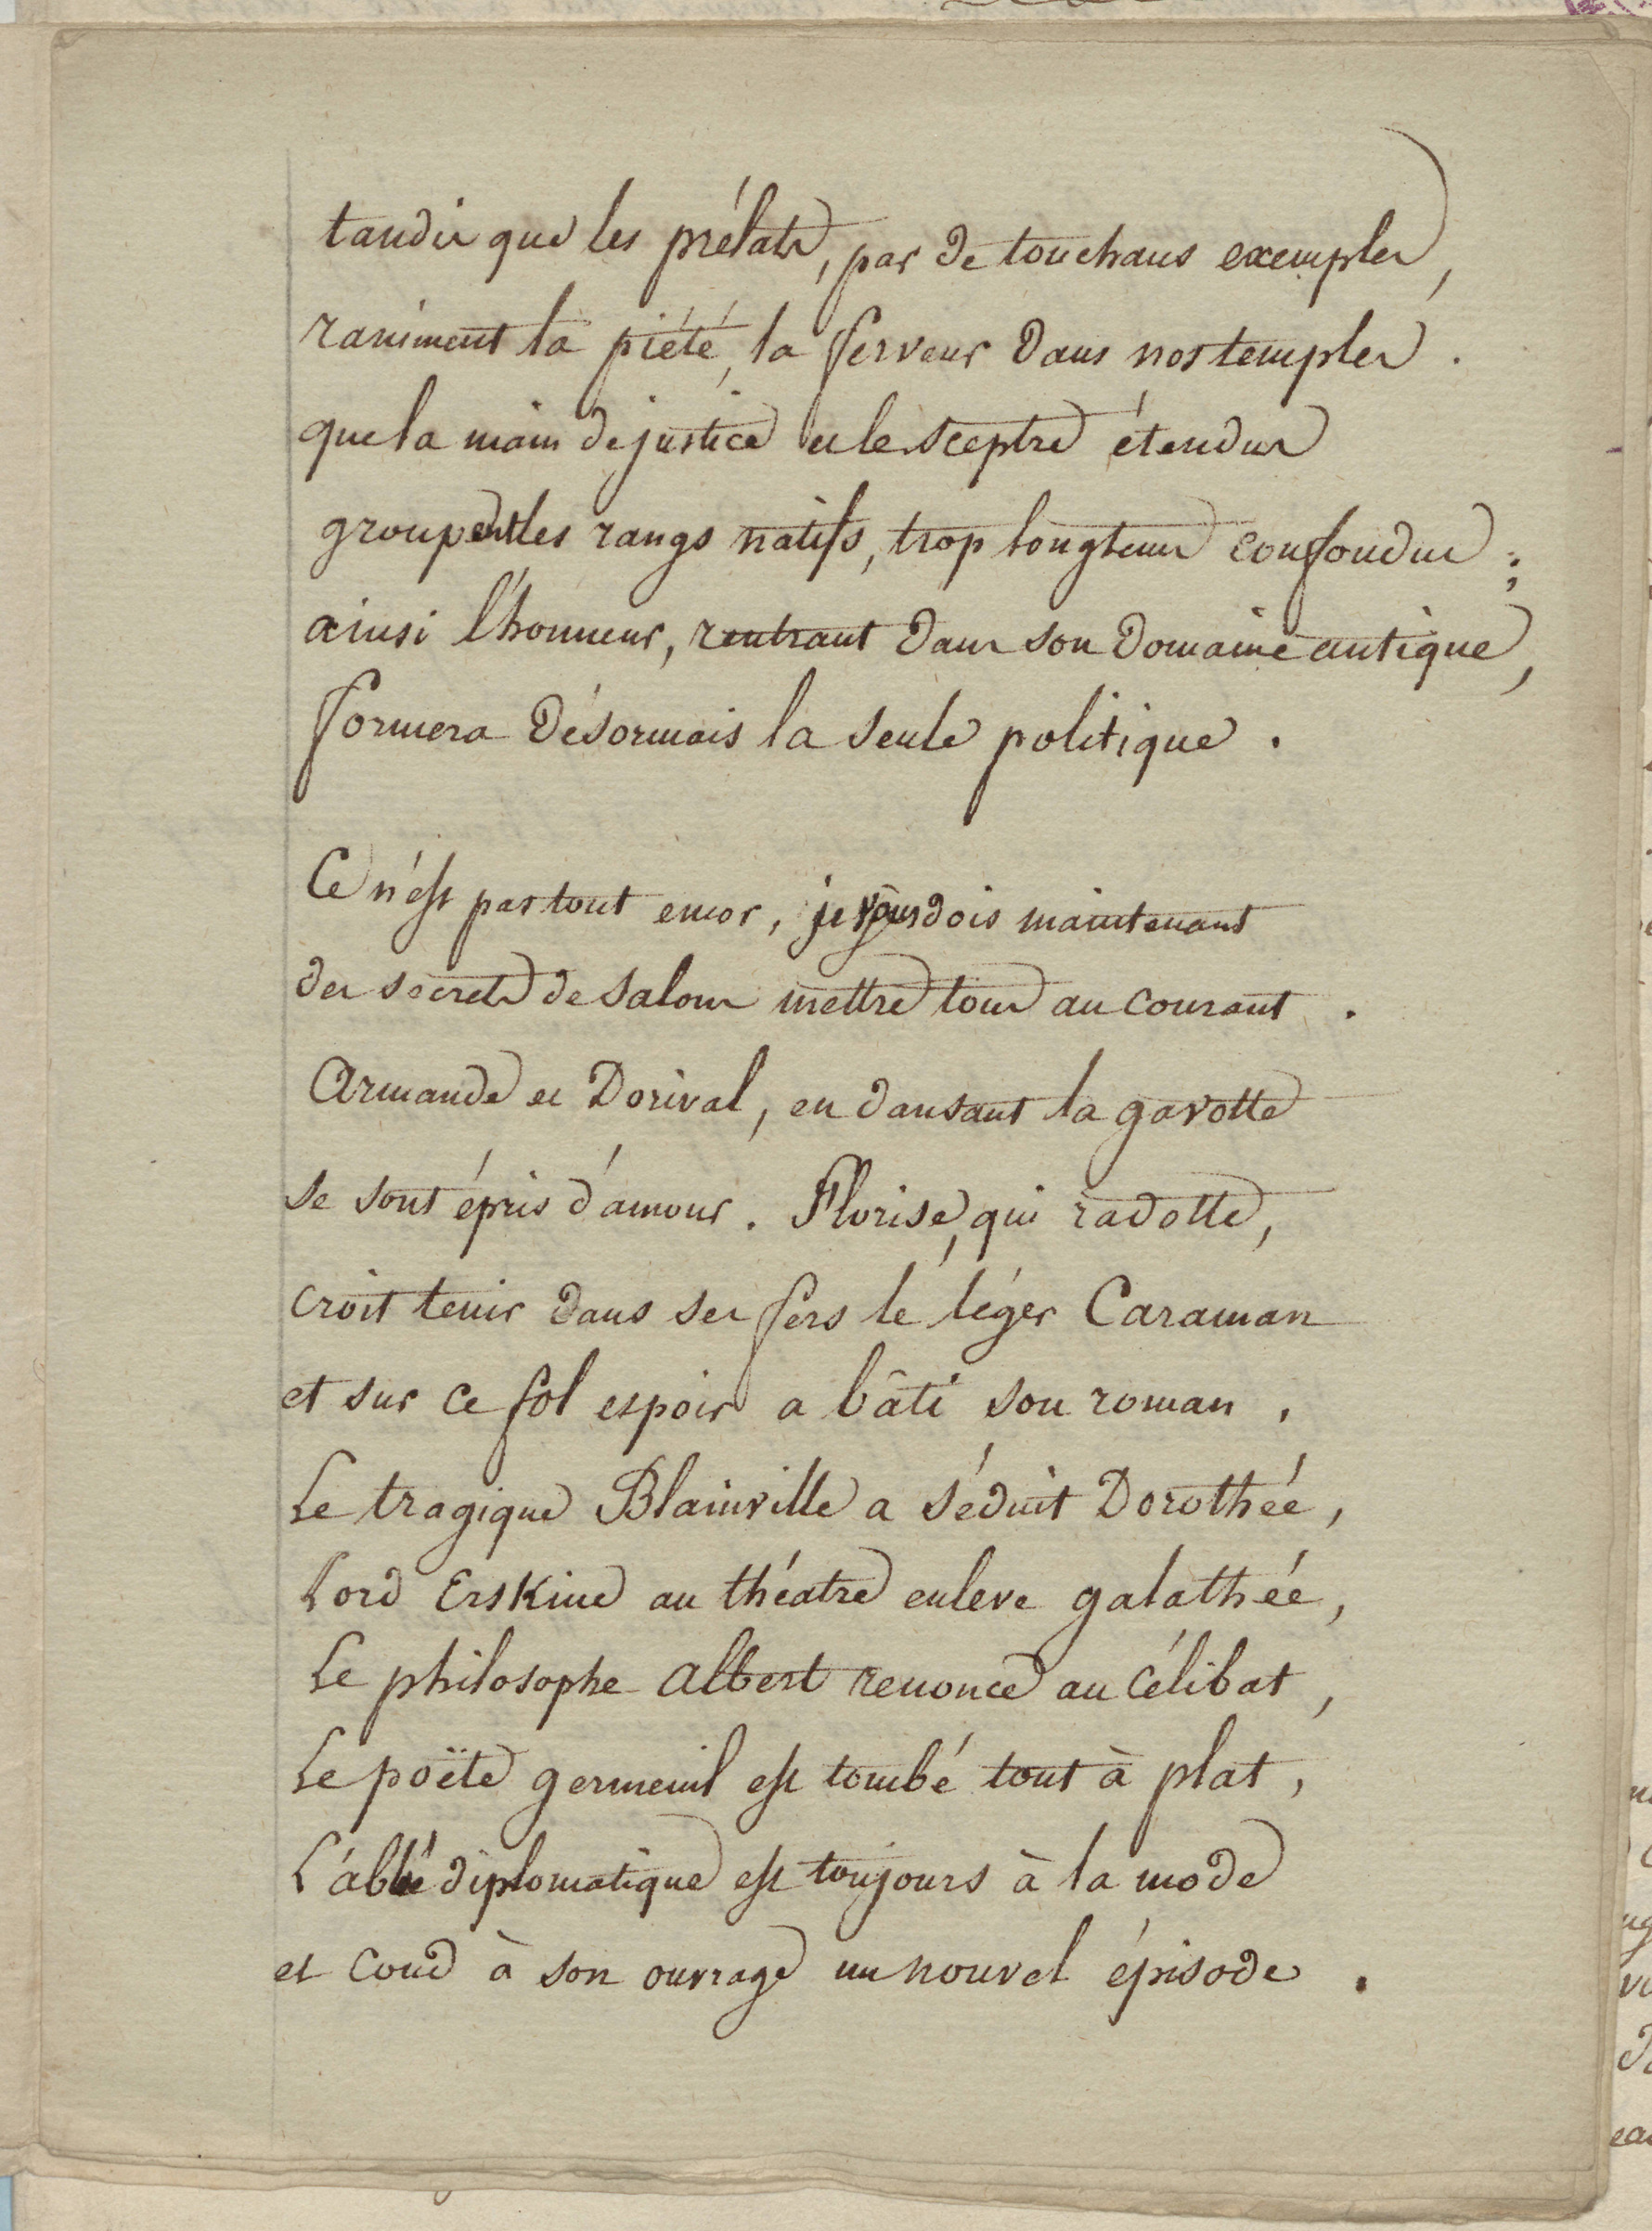 tandis que les prélats, par de touchans exemples,
raniment la piété, la ferveur dans nos temples.
que la main de justice et le sceptre étendus
groupent les rangs natifs, trop longtems confondus;
ainsi l'honneur, rentrant dans son domaine antique,
formera désormais la seule politique.
Ce n'est pas tout encor, je vous dois maintenant
des secrets de salons mettre tous au courant.
Armande et Dorival, en dansant la gavotte
se sont épris d'amour. Florise, qui radotte,
croit tenir dans ses fers le léger Caraman
et sur ce fol espoir a bâti son roman.
Le tragique Blainville a séduit Dorothée,
Lord Erskine au théatre enleve galathée,
Le philosophe albert renonce au célibat,
Le poëte germeuil est tombé tout à plat,
L'abbé diplomatique est toujours à la mode
et coud à son ouvrage un nouvel épisode.